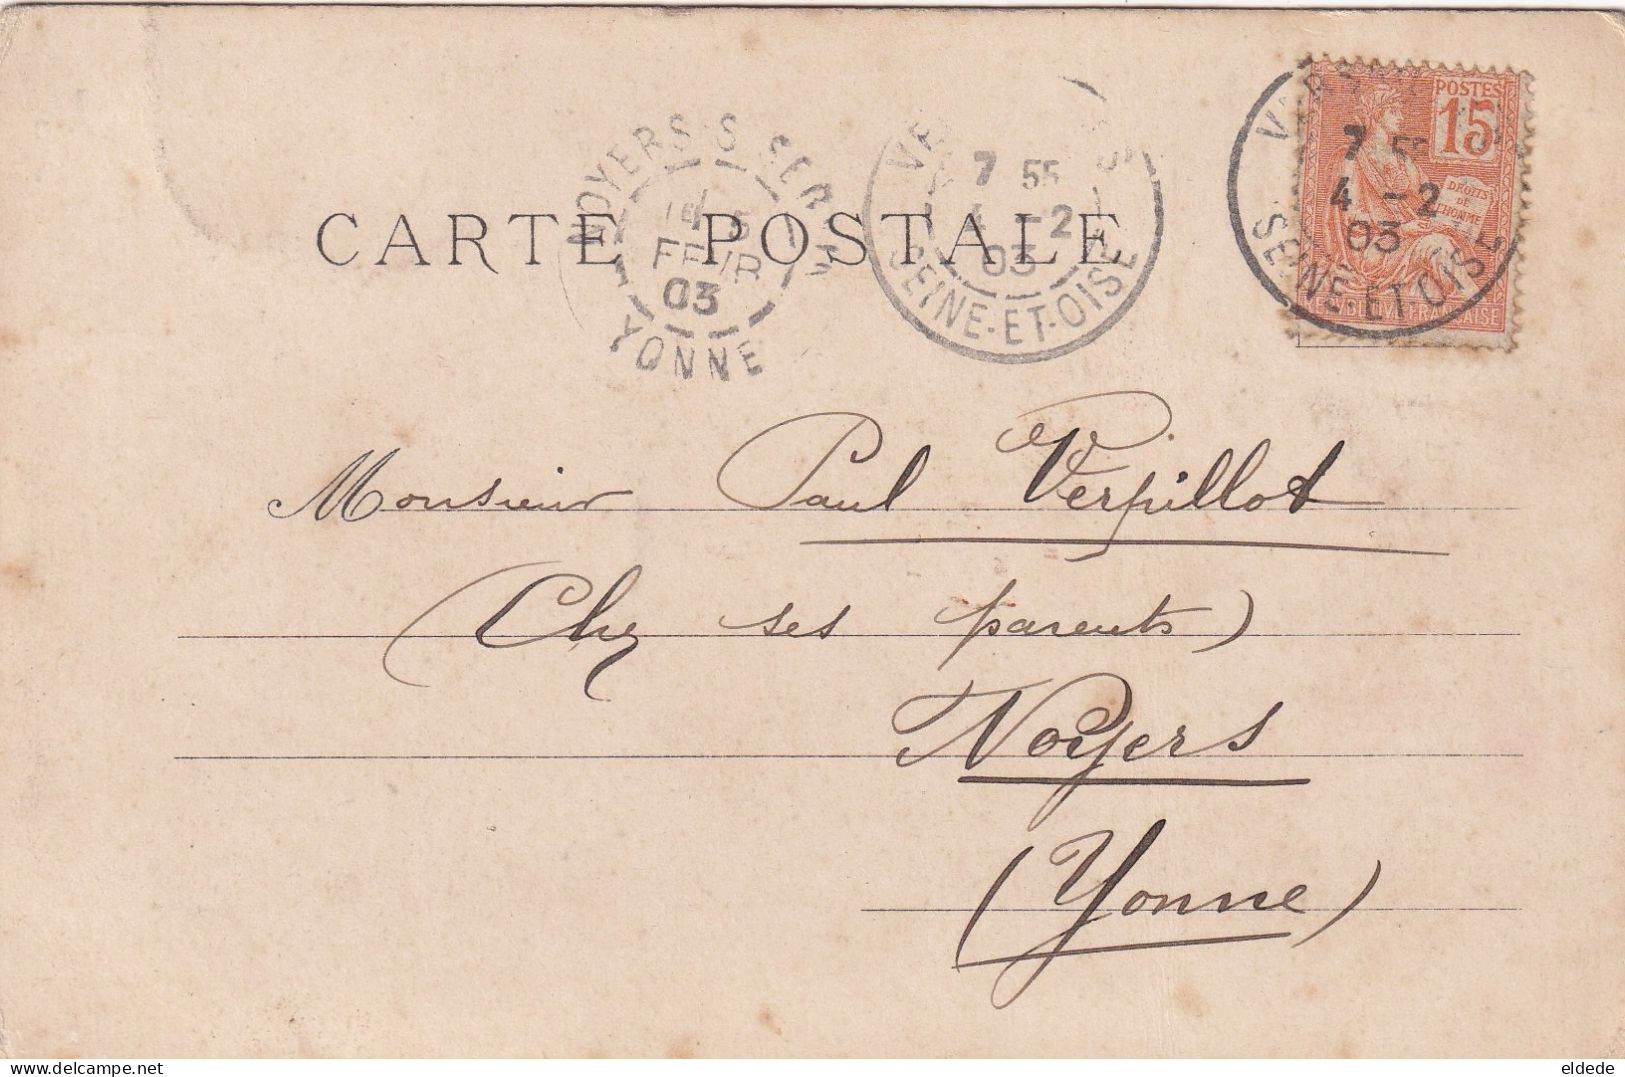 POSTES
15
DROITS
DE
L'HOMME
7 55
4 - 2
03
SEINE-ET-OISE
7 55
4 - 2
03
SEINE-ET-OISE
NOYERS S SEREIN
5
FEVR
03
YONNE
CARTE POSTALE
Monsieur Paul Verpillot
(Chez ses parents)
Noyers
(Yonne)
delcampe.net
eldede